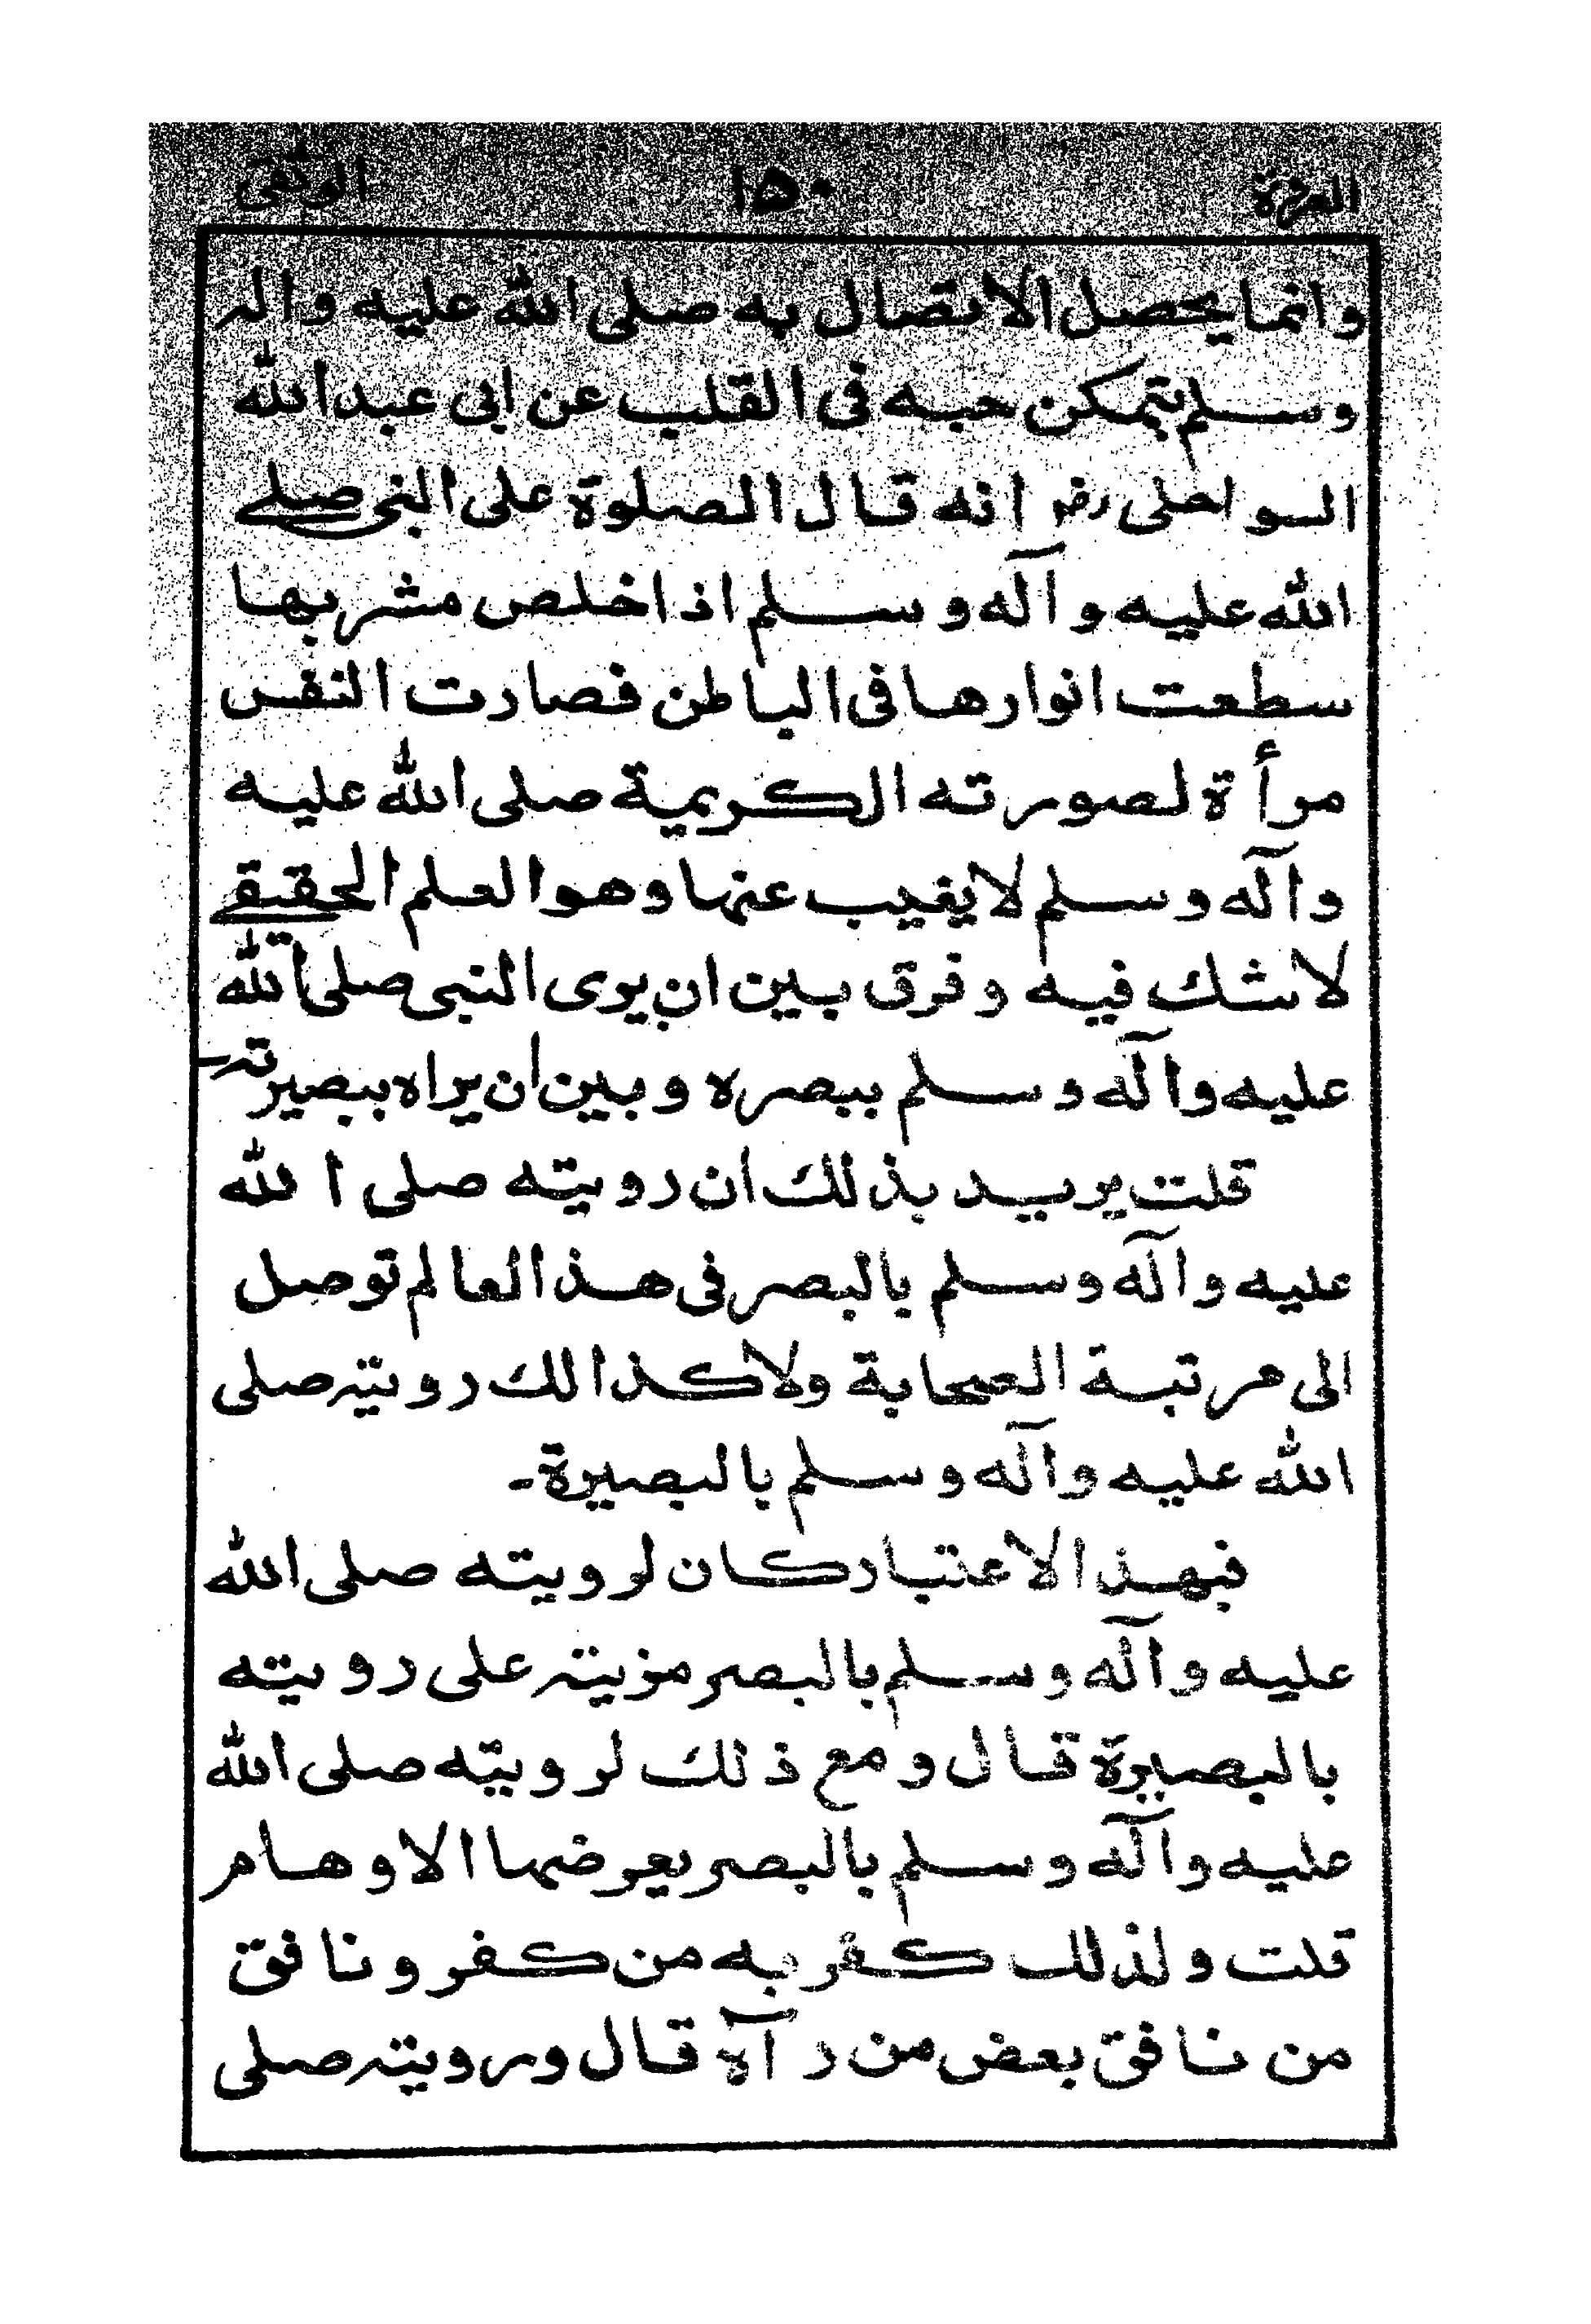 العروة ١٥٠ الوثقى
وانما يحصل الاتصال به صلى الله عليه واله
وسلم بتمكن حبه فى القلب عن ابى عبد الله
السواحلى رضـ انه قال الصلوة على النبى صلے
الله عليه وآله وسلم اذا خلص مشربها
سطعت انوارها فى الباطن فصارت النفس
مرأة لصورته الكريمية صلى الله عليه
وآله وسلم لا يغيب عنها وهو العلم الحقيقے
لاشك فيه وفرق بين ان يرى النبى صلى الله
عليه وآله وسلم ببصره وبين ان يراه ببصيرته
قلت يريد بذلك ان رويته صلى الله
عليه وآله وسلم بالبصر فى هذا العالم توصل
الى مرتبة الصحابة ولا كذالك رويته صلى
الله عليه وآله وسلم بالبصيرة۔
فبهذا الاعتبار كان لرويته صلى الله
عليه وآله وسلم بالبصر مزيته على رويته
بالبصيرة قال ومع ذلك لرويته صلى الله
عليه وآله وسلم بالبصر يعرضها الاوهام
قلت ولذلك كفر به من كفر ونافق
من نافق بعض من رآه قال ورويته صلى